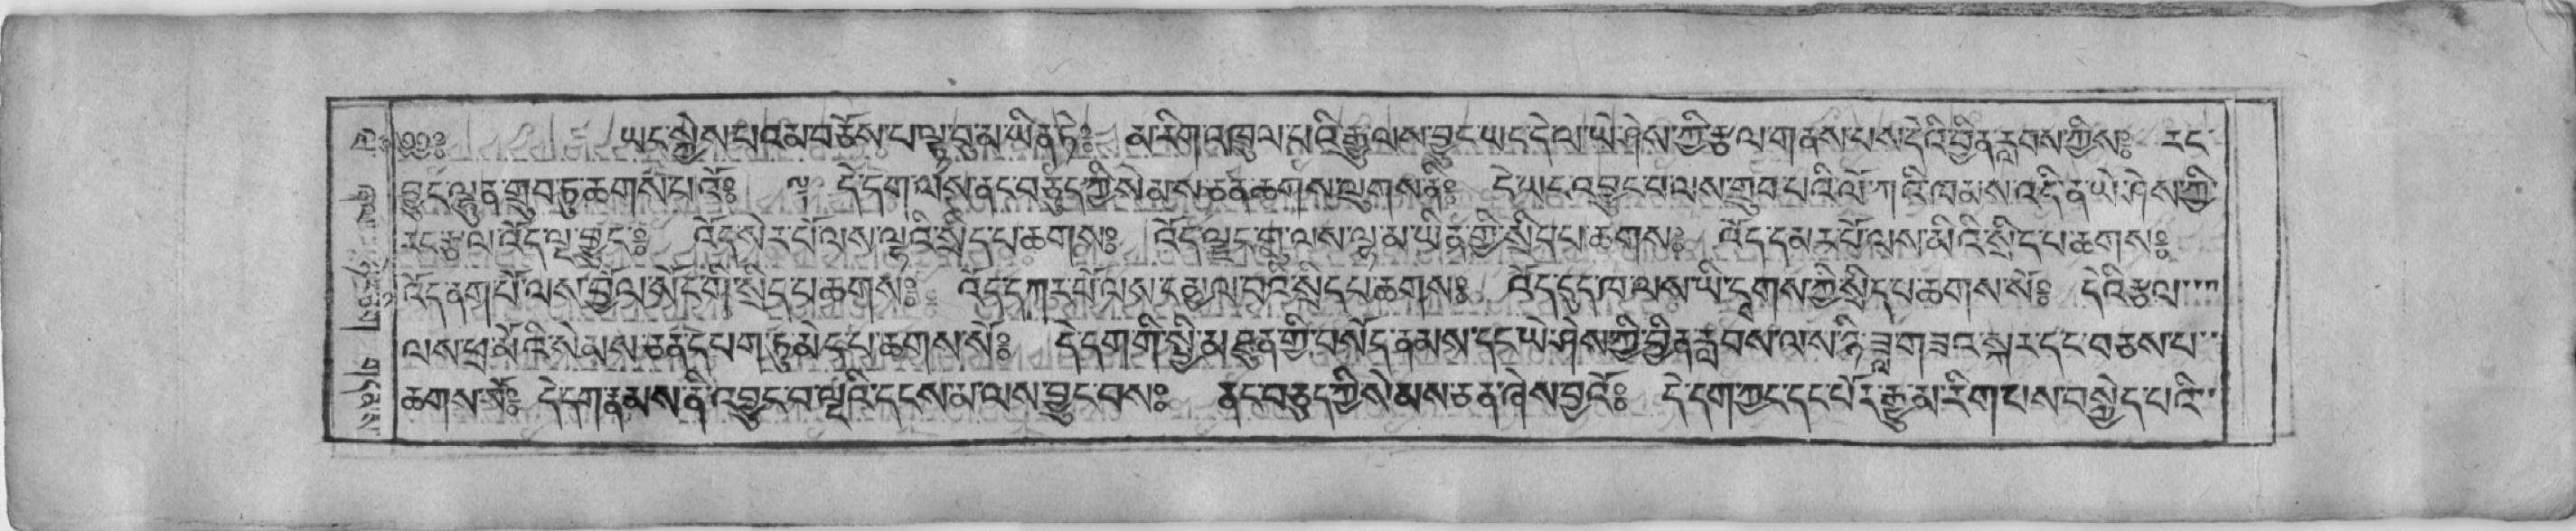 ༄༅༅ཿ ཡང་སྐྱེས་པ་འམ་བཅོས་པ་ལྟ་བུ་མ་ཡིན་ཏེཿ མ་རིག་འཁྲུལ་པའི་རྒྱུ་ལས་བྱུང་ཡང་དེ་ལ་ཡེ་ཤེས་ཀྱི་རྩལ་གནས་པས་དེའི་བྱིན་རླབས་ཀྱིསཿ རང་
བྱུང་ལྷུན་གྲུབ་ཏུ་ཆགས་པའོཿ དེ་དག་ལས་ནང་བཅུད་ཀྱི་སེམས་ཅན་ཆགས་ལུགས་ནིཿ དེ་ཡང་འབྱུང་བ་ལས་གྲུབ་པའི་ལོ་ཀའི་ཁམས་འདི་ན་ཡེ་ཤེས་ཀྱི་
རང་རྩལ་འོད་ལྔ་བྱུངཿ འོད་སེར་པོ་ལས་ལྷའི་སྲིད་པ་ཆགསཿ འོད་ལྗང་གུ་ལས་ལྷ་མ་ཡིན་གྱི་སྲིད་པ་ཆགསཿ འོད་དམར་པོ་ལས་མིའི་སྲིད་པ་ཆགསཿ
འོད་ནག་པོ་ལས་བྱོལ་སོང་གི་སྲིད་པ་ཆགསཿ འོད་དཀར་པོ་ལས་དམྱལ་བའི་སྲིད་པ་ཆགསཿ འོད་དུད་ཁ་ལས་ཡི་དྭགས་ཀྱི་སྲིད་པ་ཆགས་སོཿ དེའི་རྩལ
ལས་ཕྲ་མོའི་སེམས་ཅན་དཔག་ཏུ་མེད་པ་ཆགས་སོཿ དེ་དག་གི་སྤྱི་མཐུན་གྱི་བསོད་ནམས་དང་ཡེ་ཤེས་ཀྱི་བྱིན་རླབས་ལས་ཉི་ཟླ་གཟའ་སྐར་དང་བཅས་པ
ཆགས་སོཿ དེ་དག་རྣམས་ནི་འབྱུང་བ་ལྔའི་དངས་མ་ལས་བྱུང་བསཿ ནང་བཅུད་ཀྱི་སེམས་ཅན་ཞེས་བྱའོཿ དེ་དག་ཀྱང་དང་པོར་རྒྱུ་མ་རིག་པས་བསྐྱེད་པའི